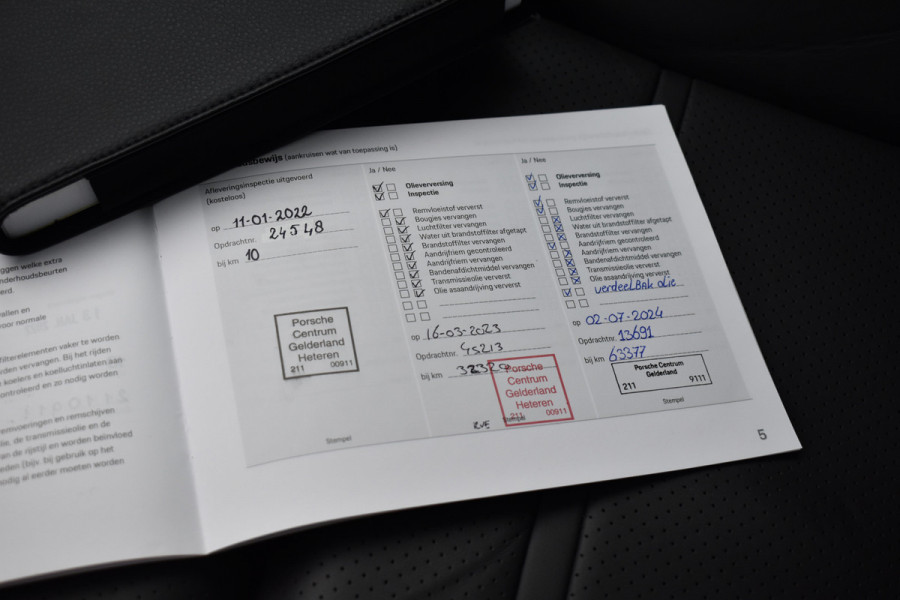 (aankruisen wat van toepassing is)
Afleveringsinspectie uitgevoerd
(kosteloos)
op 11-01-2022
Opdrachtnr. 24548
bij km 10
Porsche
Centrum
Gelderland
Heteren
211 00911
Stempel
Ja / Nee
Olieverversing
Inspectie
Remvloeistof ververst
Bougies vervangen
Luchtfilter vervangen
Water uit brandstoffilter afgetapt
Brandstoffilter vervangen
Aandrijfriem gecontroleerd
Aandrijfriem vervangen
Bandenafdichtmiddel vervangen
Transmissieolie ververst
Olie asaandrijving ververst
op 16-03-2023
Opdrachtnr. 45213
bij km
Porsche
Centrum
Gelderland
Heteren
211 00911
Stempel
Ja / Nee
Olieverversing
Inspectie
Remvloeistof ververst
Bougies vervangen
Luchtfilter vervangen
Water uit brandstoffilter afgetapt
Brandstoffilter vervangen
Aandrijfriem gecontroleerd
Aandrijfriem vervangen
Bandenafdichtmiddel vervangen
Transmissieolie ververst
Olie asaandrijving ververst
verdeelbak olie
op 02-07-2024
Opdrachtnr. 13691
bij km 63377
Porsche Centrum
Gelderland
211 9111
Stempel
5
ggen welke extra
nderhoudsbeurten
erd.
allen en
oor normale
filterelementen vaker te worden
den vervangen. Bij het rijden
e koelers en koelluchtinlaten aan
ontroleerd en zo nodig worden
emvoeringen en remschijven
lie, de transmissieolie en de
an de rijstijl en worden beïnvloed
eden (bijv. bij gebruik op het
nodig al eerder moeten worden